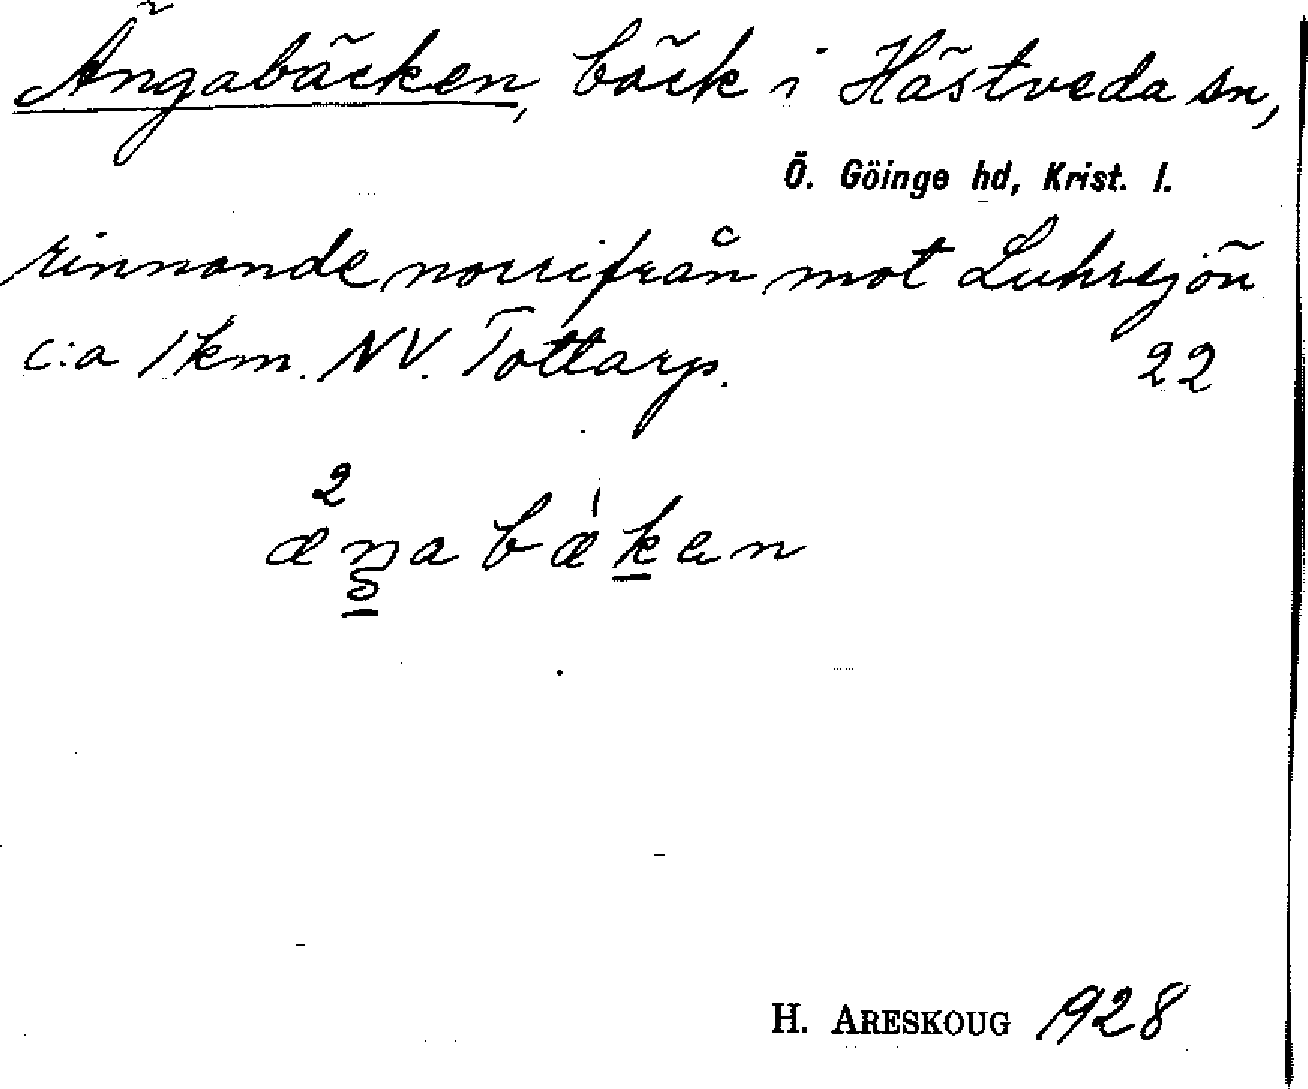 Ängabäcken, bäck i Hästveda sn,
Ö. Göinge hd, Krist. l.
rinnande norrifrån mot Luhrsjön
c:a 1 km. NV. Tottarp. 22
2
æŋabæ̍ken
H. ARESKOUG 1928